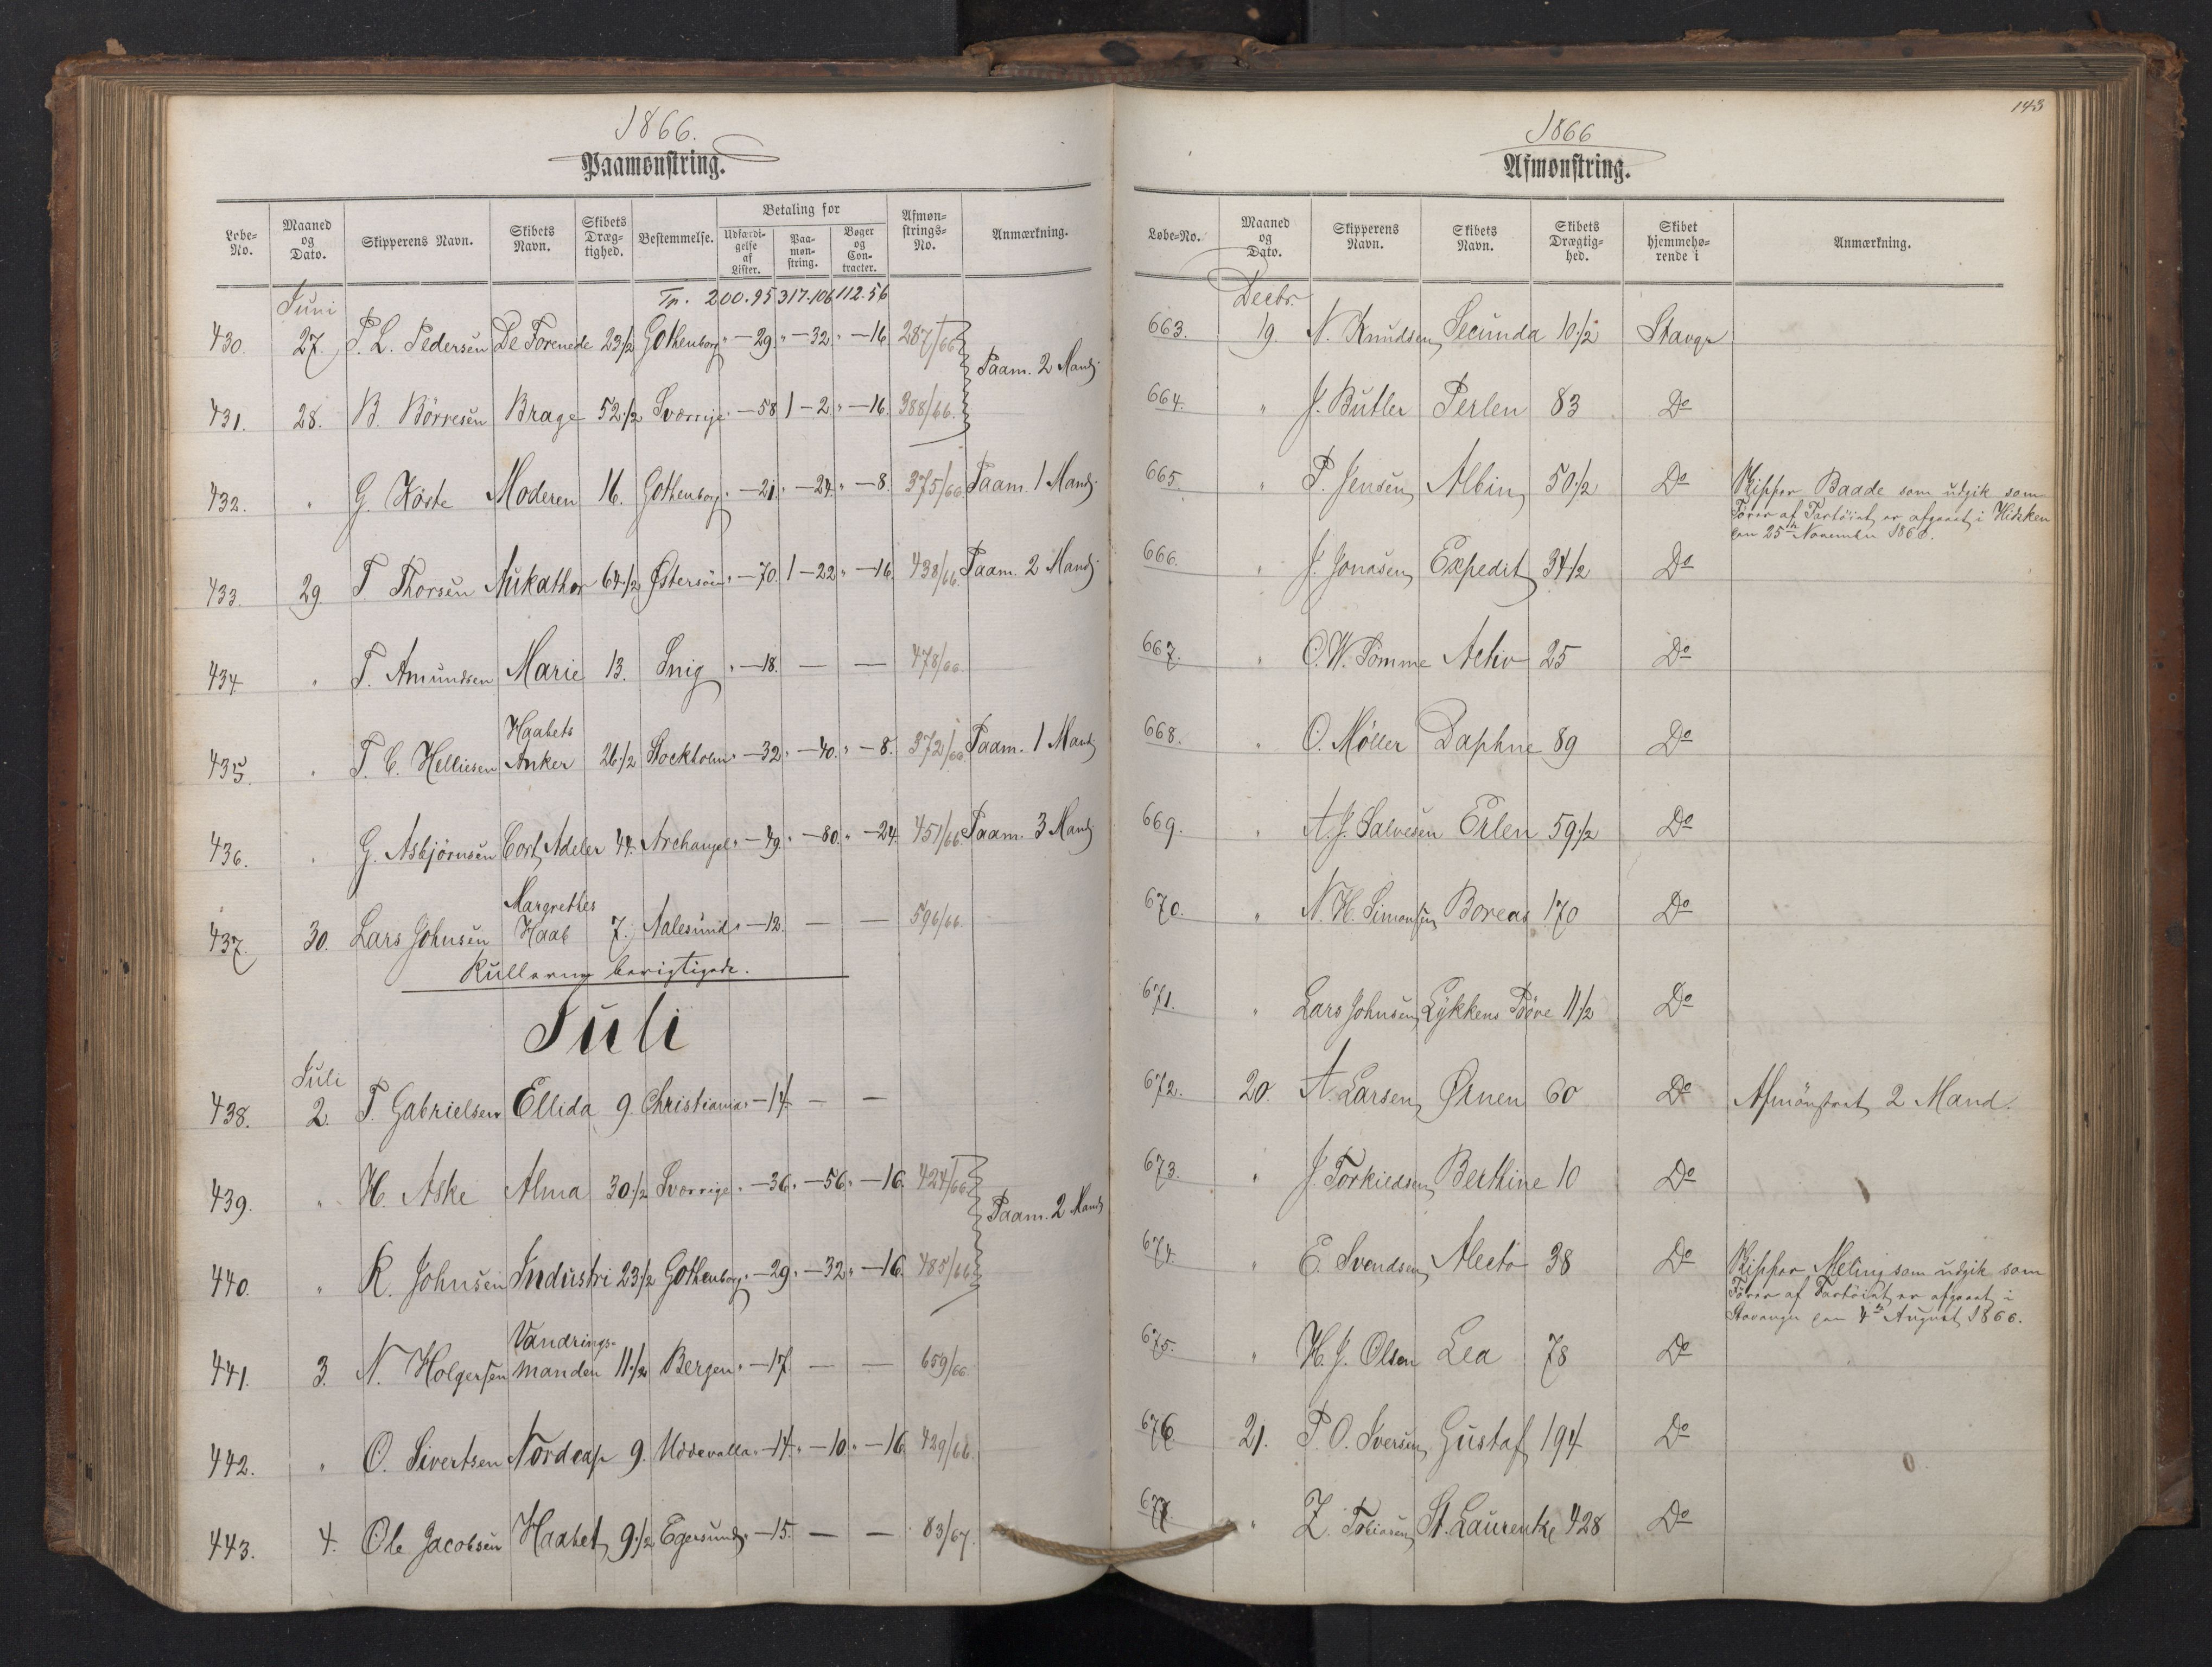 1866.
Paamønstring.
Løbe-No. Maaned og Dato. Skipperens Navn. Skibets Navn. Skibets Dræg-tighed. Bestemmelse. Betaling for Udfærdi-gelse af Lister. Paa-møn-string. Bøger og Con-tracter. Afmøn-strings-No. Anmærkning.
Tr. 200.95 317.106 112.56
Juni
430. 27. P. L. Pedersen De Forenede 23 1/2 Gothenborg " — 29. " — 32. " — 16. 287/66
Paam. 2 Mand.
431. 28. B. Börresen Brage 52 1/2 Sverrige " — 58 1 — 2 " — 16. 388/66.
432. " G. Köste Moderen 16. Gothenborg " — 21. " — 24. " — 8. 375/66. Paam. 1 Mand.
433. 29. T. Thorsen Aukathor 64 1/2 Østersöen " — 70. 1 — 22 " — 16. 438/66. Paam. 2 Mand.
434 " T. Amundsen Marie 13. Snig " — 18. — — 478/66.
435. " T. C. Helliesen Haabets Anker 26 1/2 Stockholm " — 32 " — 40. " — 8. 372/66 Paam. 1 Mand
436. " G. Asbjörnsen Cort Adeler 44. Archangel " — 49. " — 80. " — 24. 451/66. Paam. 3 Mand
437. 30. Lars Johnsen Margrethes Haab 7. Aalesund " — 12. — — 596/66.
Rullerne berigtigede.
Juli
Juli
438. 2. T. Gabrielsen Ellida 9. Christiania " — 14. — —
439. " H. Aske Alma 30 1/2 Sverrige " — 36. " — 56. " — 16. 424/66.
Paam. 2 Mand
440. " R. Johnsen Industri 23 1/2 Gothenborg " — 29. " — 32 " — 16. 485/66
441. 3. N. Holgersen Vandrings-manden 11 1/2 Bergen " — 17 — — 659/66.
442. " O. Sivertsen Nordcap 9. Uddevalla " — 14. " — 10. " — 16. 429/66.
443. 4. Ole Jacobsen Haabet 9 1/2 Egersund " — 15. — — 83/67.
143
1866
Afmønstring.
Løbe-No. Maaned og Dato. Skipperens Navn. Skibets Navn. Skibets Drægtig-hed. Skibet hjemmehø-rende i Anmærkning.
Decbr.
663. 19. N. Knudsen Secunda 10 1/2 Stavgr
664. " J. Butler Perlen 83 Do
665. " P. Jensen Albin 50 1/2 Do Skipper Baade som udgik som
Förer af Fartöiet er afgaaet i
den 25de November 1866.
666. " J. Jonasen Expedit 34 1/2 Do
667. " O. W. Tomme Activ 25 Do
668. " O. Møller Daphne 89 Do
669. " A. J. Salvesen Erlen 59 1/2 Do
670. " N. H. Simonsen Boreas 170 Do
671. " Lars Johnsen Lykkens Pröve 11 1/2 Do
672. 20. A. Larsen Ørnen 60 Do Afmönstret 2 Mand.
673. " J. Torkildsen Berthine 10 Do
674. " E. Svendsen Alecto 38 Do Skipper Meling som udgik som
Förer af Fartöiet er afgaaet i
Stavanger den 4de August 1866.
675. " H. J. Olsen Lea 78 Do
676. 21. P. O. Iversen Gustaf 194 Do
677. " Z. Tobiasen St. Laurentze 428 Do